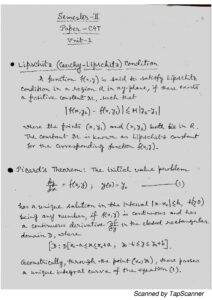 Semester-II
Paper - C4T
Unit-1
• Lipschitz (Cauchy-Lipschitz) Condition
A function f(x,y) is said to satisfy Lipschitz
condition in a region R in xy-plane, if there exists
a positive constant M, such that
|f(x,y₂) - f(x,y₁)| ≤ M|y₂-y₁|
where the points (x,y₁) and (x,y₂) both lie in R.
The constant M is known as Lipschitz constant
for the corresponding function f(x,y).
• Picard's Theorem: The initial value problem
dy/dx = f(x,y), y(x₀)=y₀ (1)
has a unique solution in the interval |x-x₀| ≤ h,
being any number, if f(x,y) is continuous and has
a continuous derivative in the closed rectangular
domain D, where
Geometrically, through the point (x₀,y₀), there passes
a unique integral curve of the equation (1).
Scanned by TapScanner